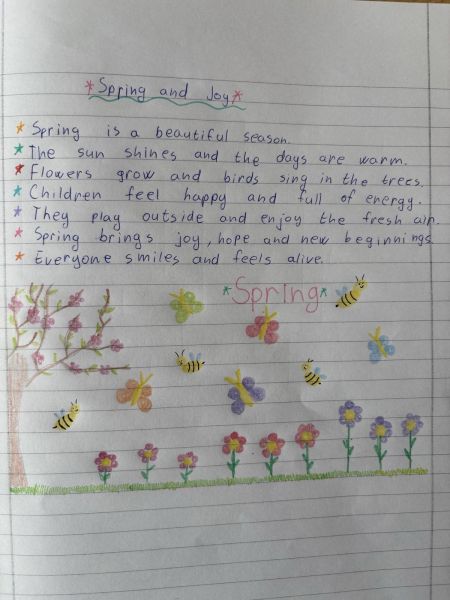 *Spring and Joy*
* Spring is a beautiful season.
* The sun shines and the days are warm.
* Flowers grow and birds sing in the trees.
* Children feel happy and full of energy.
* They play outside and enjoy the fresh air.
* Spring brings joy, hope and new beginnings.
* Everyone smiles and feels alive.
*Spring*